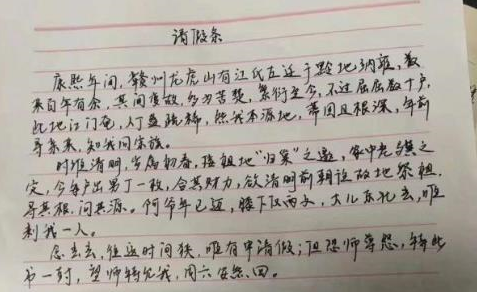 请假条
康熙年间，赣州龙虎山有江氏左迁于黔地纳雍，数
来百年有余，其间变故，多为苦楚，繁衍至今，不过屈屈数十户，
此地江门奄，人丁益稀，然我本源地，蒂固且根深，年前
寻条来，知我同宗族。
时维清明，当属初春，接祖地“归策”之邀，家中老骥之
定，今每户出男丁一枚，合其财力，欲清明前期往故地祭祖，
寻其根，问其源。阿爷年已迈，膝下仅两女，大儿东北去，唯
剩我一人。
念去去，往返时间狭，唯有申请假；但恐师尊怨，特此
书一封，望师特允我，周六安然回。